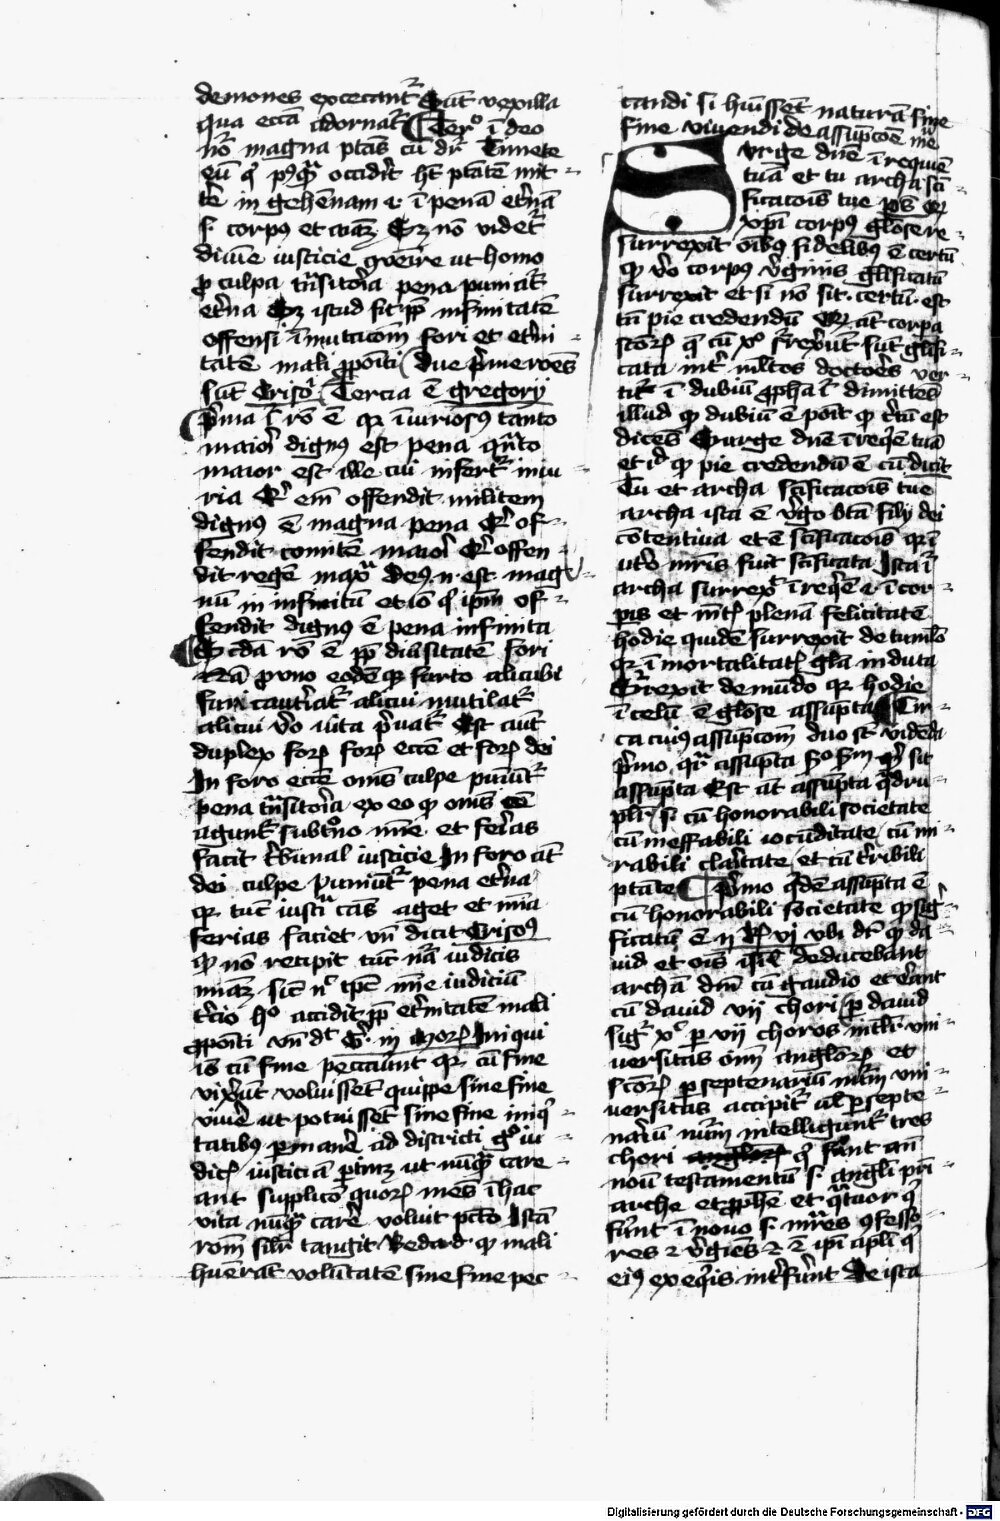 demones excecantr̃ Sũt vexilla
qua ecc̃a adornat᷑ ¶ Terº ĩ deo
nr̃o magna ptãs cũ dr̃ Timete
eũ q̇ pꝰq̃ᷓ occidit᷑ hꝫ ptãtẽ mit-
te᷑ in gehẽnam .i. ĩ penã et᷑nã
s. corpus et aĩaꝫ Sꝫ nõ videt᷑
diuine iusticie gueĩre ut homo
ꝓ culpa tñsito᷑ia pena puniat᷑
et᷑na Sꝫ istud fit ꝓp̃ infinitatẽ
offensi ĩmutacõm fori et et᷑ni-
tatẽ mali ꝓpõiti Due p᷑me rões
sũt Crisoᷤ Tercia ẽ gregorij
p᷑ma ĩ rõ ẽ qꝛ ĩiuriosꝰ tanto
maioi᷑ dignꝰ est pena quãto
maior est ille cui infert᷑ iniu-
ria Qͥ em̃ offendit militem
dignꝰ ẽ magna pena Qͥ of-
fendit comitẽ maioi᷑ Qͥ offen-
dit regẽ maxᷓ deꝰ .n. est mag-
nũ in infinitũ et iõ q̇ ipm̃ of-
fendit dignꝰ ẽ pena infinita
¶ Scd̃a rõ ẽ ꝓp̃ diũsitatẽ fori
Nã ꝓ vno eodẽqꝫ furto alicubi
furi cauteriat᷑ alicui mutilat᷑
alicui v᷑o uita p᷑uat᷑ Est autẽ
duplex forꝰ forꝰ ecc̃e et forꝰ dei
In foro ecc̃e om̃s culpe puniũt᷑
pena tñsito᷑ia ex eo qꝫ om̃s
agunt᷑ sub tᵒno mie᷑ et ferias
facit t᷑bunal iusticie In foro aũt
dei culpe puniũt᷑ pena et᷑na
qꝛ tũc iusti᷑a cãs aget et mĩa
ferias faciet vñ dicit Crisosꝰ
qꝫ nõ recipit tũc nr̃a iudicis
miãꝫ sic̃ nᶜ tp̃c mie᷑ iudiciũ
t᷑cio hº accidit ꝓp̃ et᷑nitatẽ mali
ꝓpõiti vñ dt̃ Gᷣ. in morꝰ Iniqui
iõ cũ fine peccauerunt qꝛ cũ fine
vix᷑ũt voluissent quippe sine fine
viue᷑ ut potuissent sine fine iniq̇-
tatibꝰ permane᷑ ad districti gᵒ iu-
dicꝰ iusticiã ꝑtinꝫ ut nũq̃ᷓ care-
ant supplicio quorꝰ mẽs ĩ hac
vita nũq̃ᷓ care᷑ voluit pctõ Istã
rõm silr̃ tangit Beda .d. qꝫ mali
hue᷑rãt volũtatẽ sine fine pec-
candi si hiũssent naturã sine
fine viuendi de assupcõe m̃e᷑
Surge dñe ĩ requiẽ
tuã et tu archa sc̃i-
ficacõis tue ps̃ Qꝛ
xpĩ corpꝰ glõse re-
surrexit oĩbꝰ fidelibꝰ ẽ certũ
qꝫ v᷑o corpꝰ v᷑ginis glificatũ
surrexit et si nõ sit certũ est
tñ pie credendũ Qꝛ aũt corpa
sc̃orꝰ q̇ cũ xº s᷑rex᷑ũt sũt glifi-
cata int᷑ m̃ltos doctores ver-
tit᷑ ĩ dubiũ ꝓpha ĩ dimittẽs
illud qꝫ dubiũ ẽ põit qꝫ c᷑tũ est
dicẽs Surge dñe ĩ req̇ẽ tuã
et id̃ qꝫ pie credendũ ẽ cũ dicit
Tu et archa sc̃ificacõis tue
archa ista ẽ v᷑go bt̃a filij dei
cõtentiua et ẽ sc̃ificacõis qꝛ ĩ
ute᷑o mr̃is fuit sc̃ificata Ista ĩ
archa surrex᷑ ĩ req̇ẽ .i. ĩ cor-
pis et mẽtꝰ plenã felicitatẽ
hodie quidẽ surrexit de tumlo
qꝛ ĩmortalitatꝰ glã induta
Surrexit de mũdo qꝛ hodie
ĩ celũ ẽ glõse assũpta ¶ Cir-
ca cuiꝰ assũpcõm duo st̃ vidẽda
p᷑mo qr̃ assũpta Sº Sm̃ qͥ sit
assũpta Est aũt assũpta q̃ᷓdru-
plr̃ s. cũ honorabili societate
cũ ineffabili iocũditate cũ mi-
rabili claritate et cũ t᷑ribili
ptãte ¶ p᷑mo q̃dẽ assũpta ẽ
cũ honorabili societate qꝫ sig-
ficatũ ẽ ij Rꝫ vj ubi dr̃ qꝫ da-
uid et oĩs isrl̃ deducebant
archã dñi cũ gaudio et erãnt
cũ dauid vij chori ꝑ dauid
sigᷣ xᶜ ꝑ vij choros intl̃i vni-
uersitas om̃i anglorꝰ et
sc̃orꝰ ꝑ septenariũ nũm vni-
uersitas accipit᷑ al ꝑ septe-
nariũ nũm intelligunt᷑ tres
chori q̇ fũnt añ
nouũ testamentũ s. angli pr̃i-
arche et ꝓphe et q̃ᷓtuor q̇
fũnt ĩ nouo s. m᷑res ꝯfesso-
res ⁊ v᷑gines ⁊ ẽ ipĩ apl̃i q̇
eiꝰ exeq̇is int᷑fũnt De ista
Digitalisierung gefördert durch die Deutsche Forschungsgemeinschaft - DFG